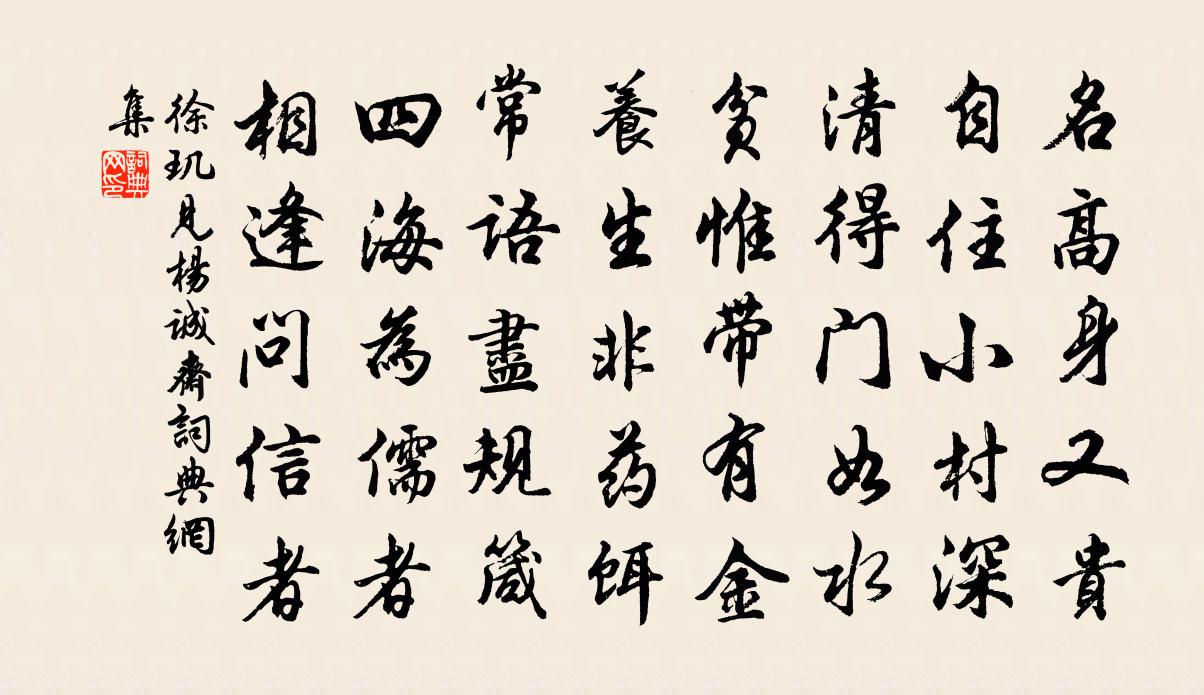 名高身又貴
自住小村深
清得门如水
貧惟带有金
養生非药餌
常語盡規箴
四海為儒者
相逢問信者
徐玑見楊誠齋詞典網
集
詞典
网印